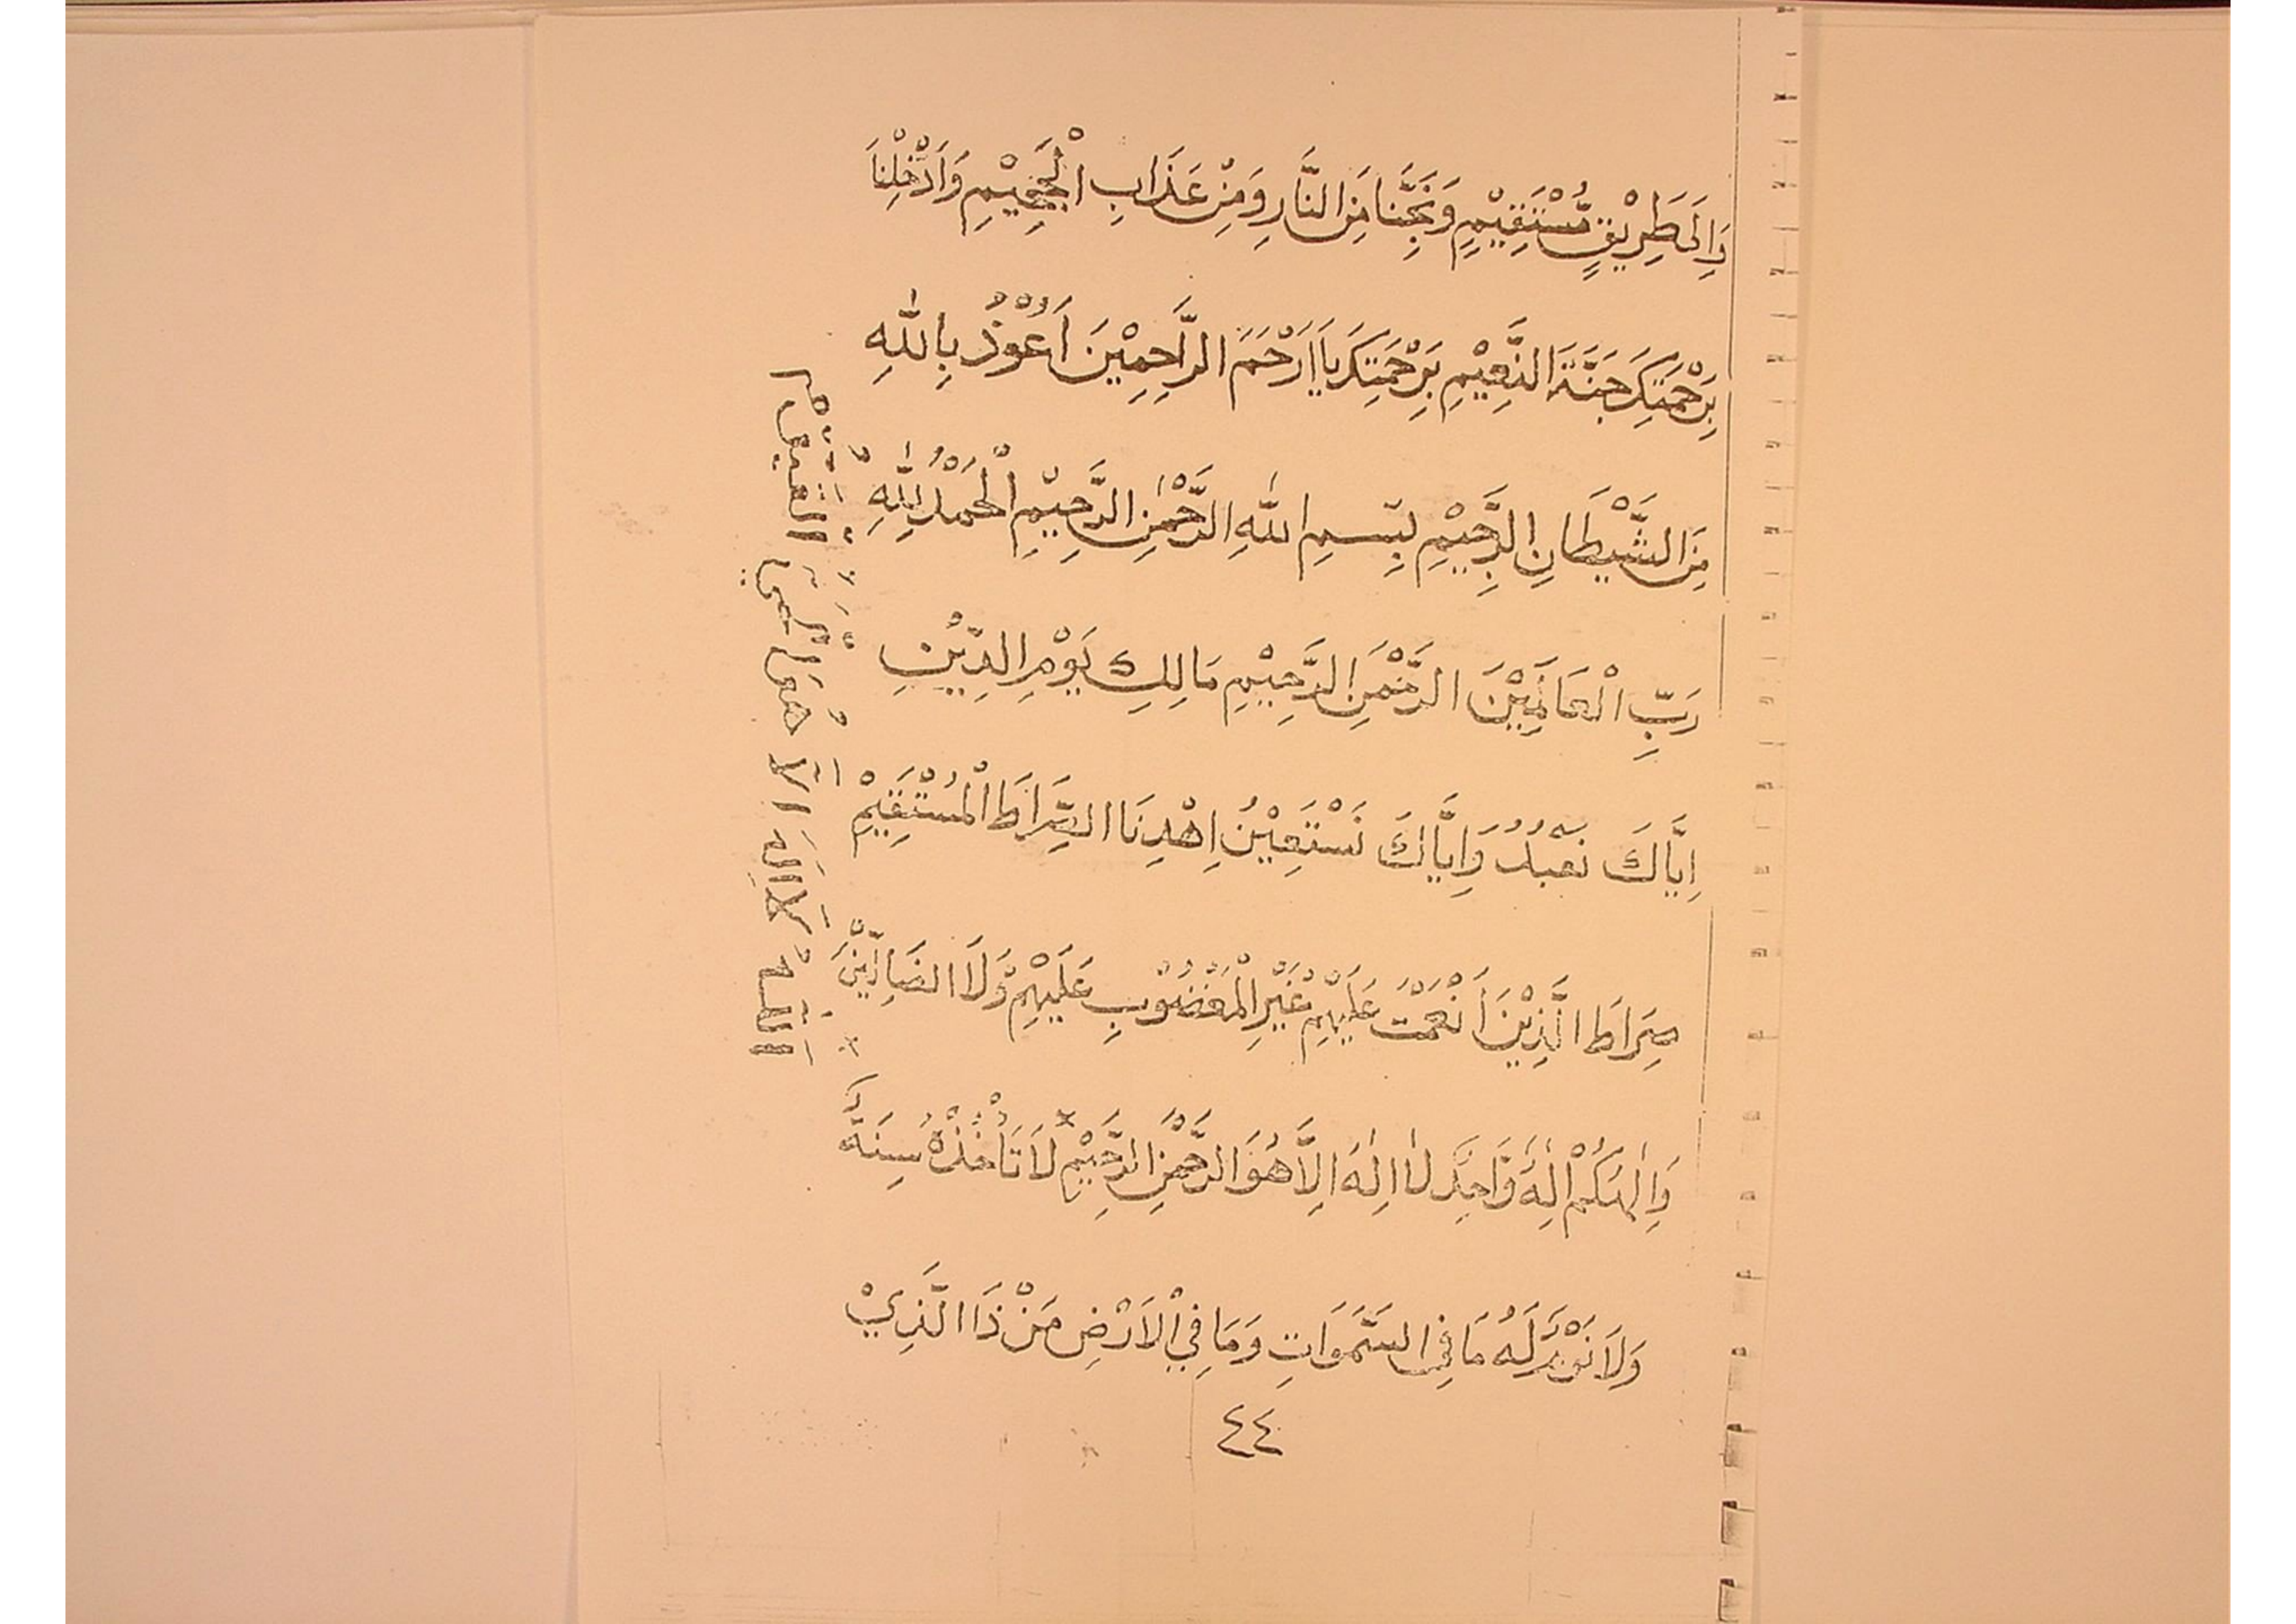 وَاِلَى طَرِيْقٍ مُّسْتَقِيْمٍ وَنَجِّنَا مِنَ النَّارِ وَمِنْ عَذَابِ الْجَحِيْمِ وَاَدْخِلْنَا
بِرَحْمَتِكَ جَنَّةَ النَّعِيْمِ بِرَحْمَتِكَ يَا اَرْحَمَ الرَّاحِمِيْنَ اَعُوْذُ بِاللّٰهِ
مِنَ الشَّيْطَانِ الرَّجِيْمِ بِسْمِ اللّٰهِ الرَّحْمٰنِ الرَّحِيْمِ اَلْحَمْدُ لِلّٰهِ
رَبِّ الْعَالَمِيْنَ الرَّحْمٰنِ الرَّحِيْمِ مَالِكِ يَوْمِ الدِّيْنِ
اِيَّاكَ نَعْبُدُ وَاِيَّاكَ نَسْتَعِيْنُ اِهْدِنَا الصِّرَاطَ الْمُسْتَقِيْمَ
صِرَاطَ الَّذِيْنَ اَنْعَمْتَ عَلَيْهِمْ غَيْرِ الْمَغْضُوْبِ عَلَيْهِمْ وَلَا الضَّالِّيْنَ
وَاِلٰهُكُمْ اِلٰهٌ وَّاحِدٌ لَا اِلٰهَ اِلَّا هُوَ الرَّحْمٰنُ الرَّحِيْمُ لَا تَأْخُذُهُ سِنَةٌ
وَلَا نَوْمٌ لَهُ مَا فِى السَّمٰوَاتِ وَمَا فِي الْاَرْضِ مَنْ ذَا الَّذِيْ
اَللّٰهُ لَا اِلٰهَ اِلَّا هُوَ اَلْحَيُّ الْقَيُّوْمُ
٤٤